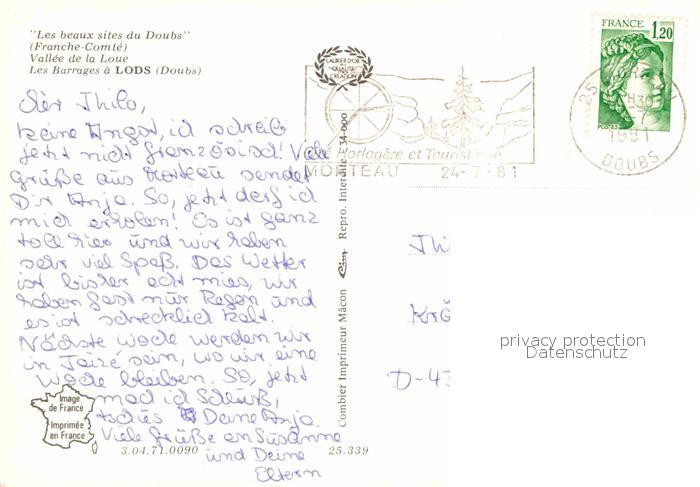 "Les beaux sites du Doubs"
(Franche-Comté)
Vallée de la Loue
Les Barrages à LODS (Doubs)
LAURIER D'OR
DE LA
QUALITÉ
CRÉATION
Horlogère et Touristique
MORTEAU 24-7-81
FRANCE
1,20
POSTES
25
1981
DOUBS
Thilo,
keine Angst, ich schreib
jetzt nicht französisch! Viele
Grüße aus Morteau sendet
Dir Anja. So, jetzt darf ich
mich erholen! Es ist ganz
toll hier und wir haben
sehr viel Spaß. Das Wetter
ist bisher echt mies, wir
haben fast nur Regen und
es ist schrecklich kalt.
Nächste Woche werden wir
in Taizé sein, wo wir eine
Woche bleiben. So, jetzt
mach ich Schluß,
tschüs Deine Anja.
Viele Grüße an Susanne
und Deine
Eltern
Combier Imprimeur Mâcon Cim Repro. Interdite
Thi
Krö
D-43
privacy protection
Datenschutz
Image
de France
Imprimée
en France
3.04.71.0090
25.339